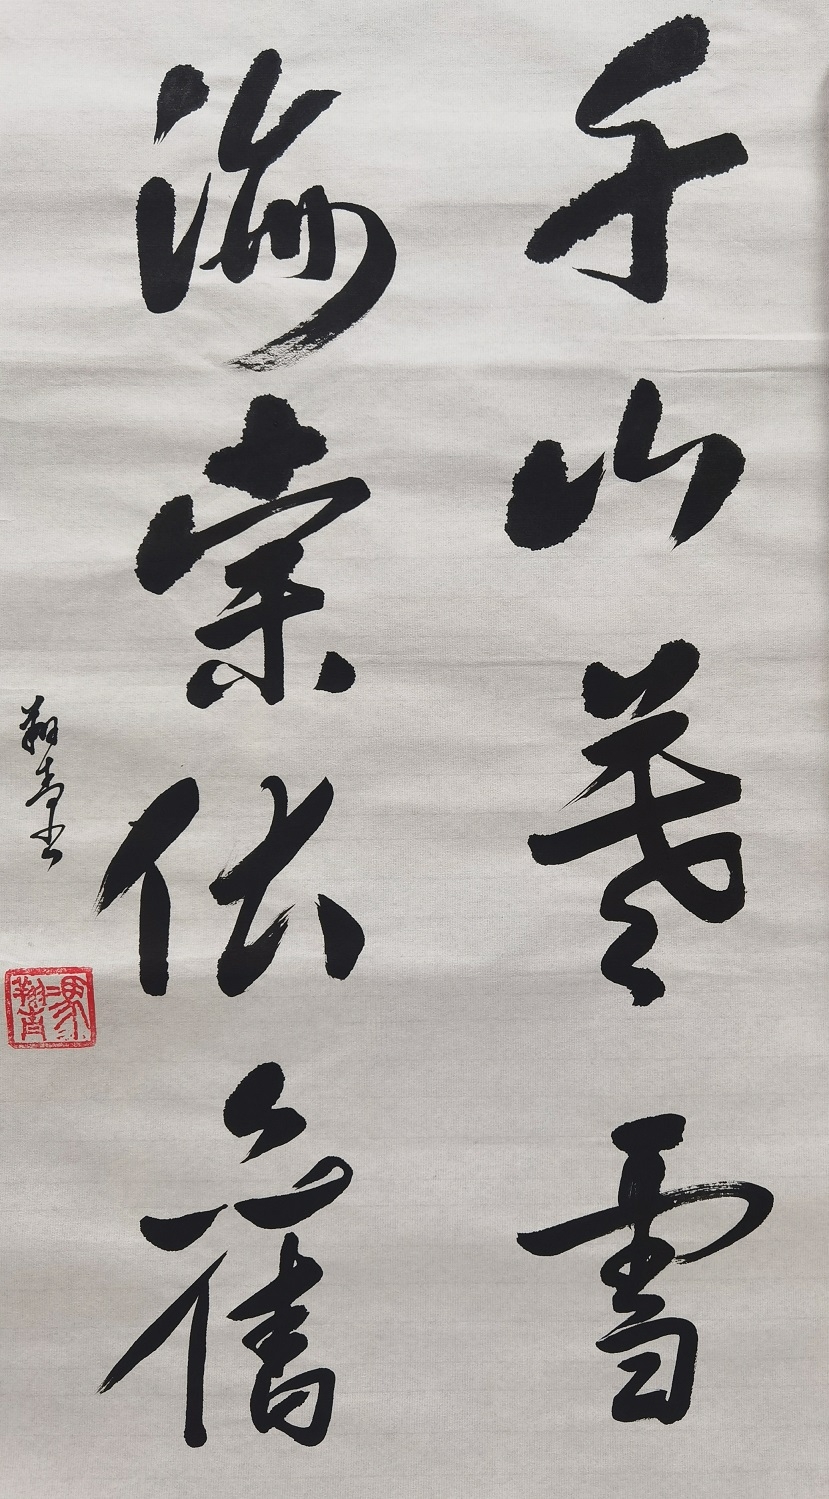 千山暮雪
海棠依舊
翔青书